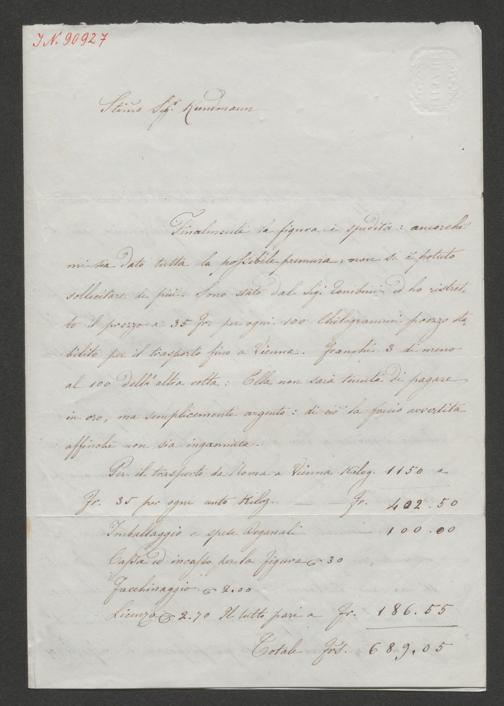 I.N. 90927
Stimo Sigr Kundmann
Finalmente la figura è spedita: ancorchè
mi sia dato tutta la possibile premura, non se è potuto
sollicitare di più. Sono stato dal Sigr ed ho ristret-
to il prezzo a 35 Fr. per ogni 100 Chilogrammi prezzo sta
bilito per il trasporto fino a Vienna. Franchi 3 di meno
al 100 dell'altra volta: Ella non sarà tenuta di pagare
in oro, ma semplicemente argento: di ciò la faccio avvertita
affinchè non sia ingannata.
Per il trasporto da Roma a Vienna Kilog. 1150 a
Fr. 35 per ogni cento Kilog. — — Fr. 402.50
Imballaggio e spese Doganali — 100.00
Cassa ed incasso per la figura 30
Facchinaggio 2.00
Licenza 2.70 Il tutto pari a Fr. 186.55
Totale Frs. 689.05